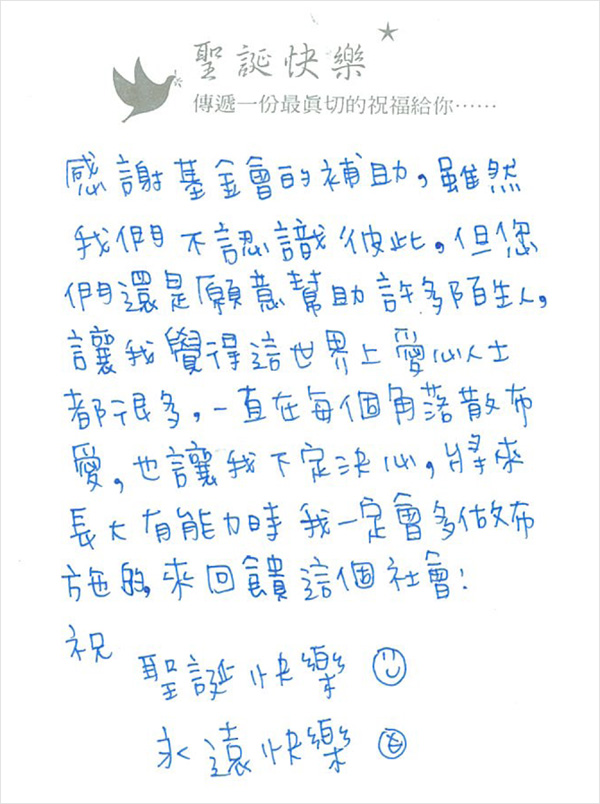 聖誕快樂
傳遞一份最真切的祝福給你⋯⋯
感謝基金會的補助,雖然
我們不認識彼此,但您
們還是願意幫助許多陌生人,
讓我覺得這世界上愛心人士
都很多,一直在每個角落散布
愛,也讓我下定決心,將來
長大有能力時我一定會多做布
施的,來回饋這個社會!
祝
聖誕快樂
永遠快樂